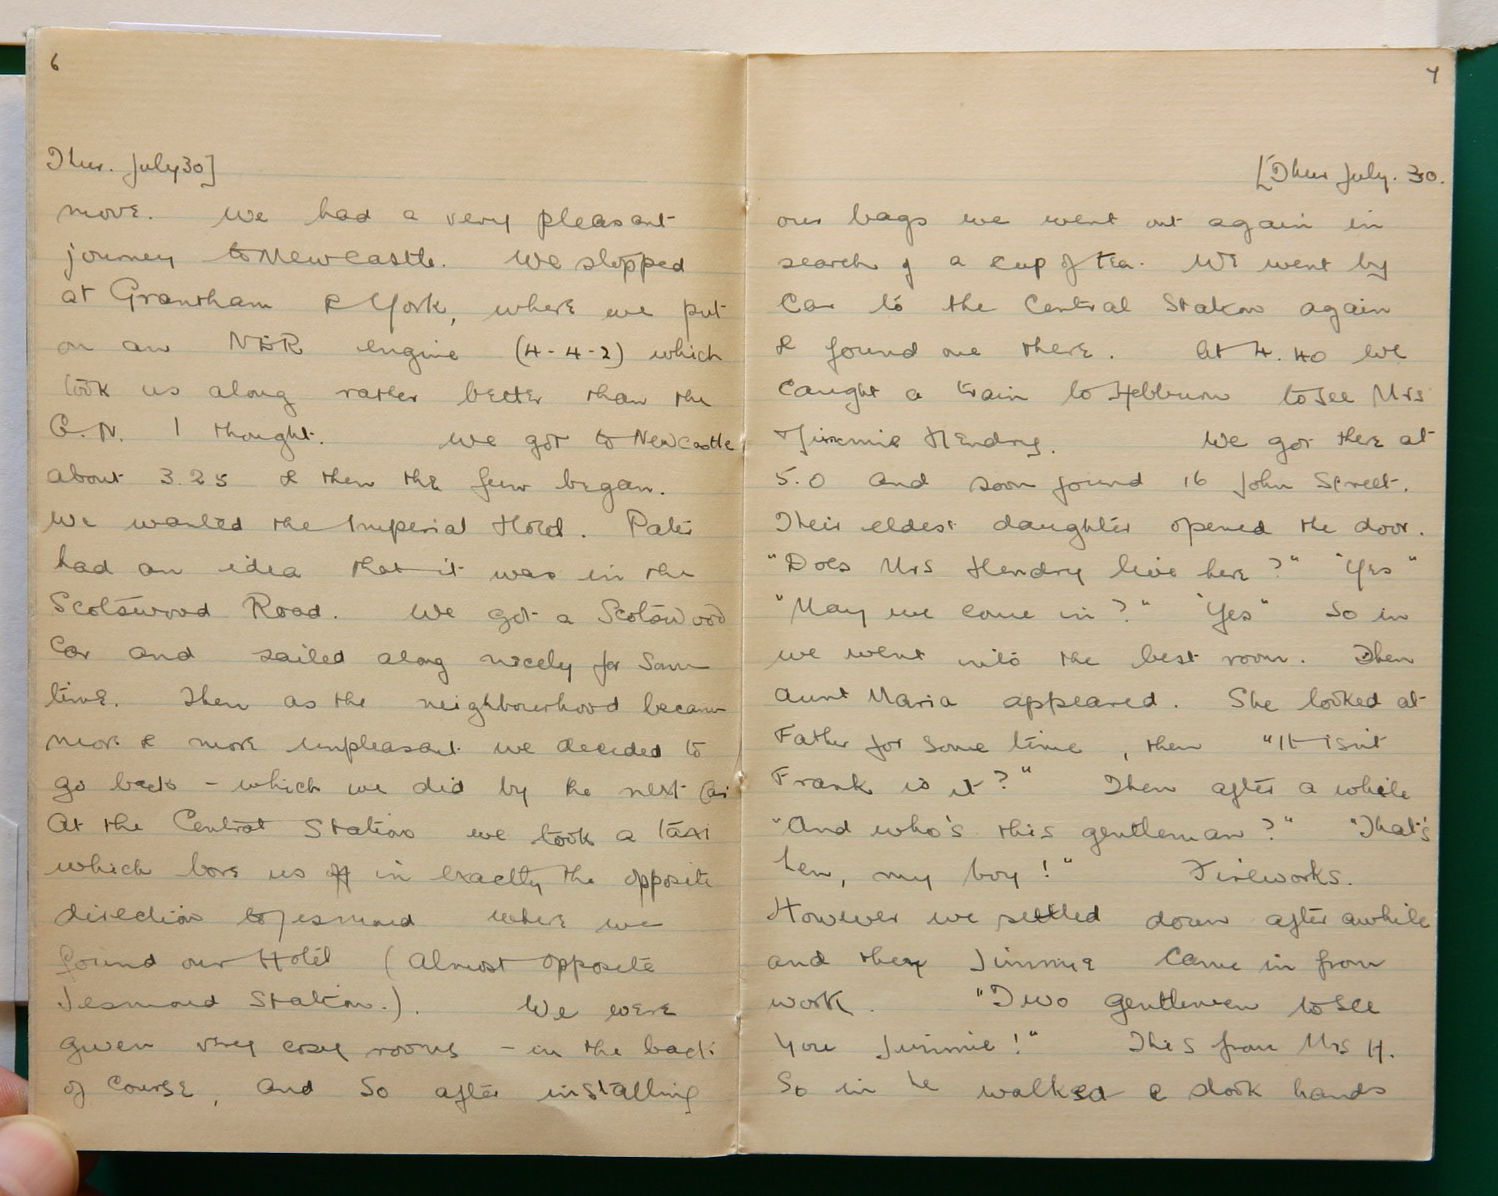 6
Thur. July 30]
move. We had a very pleasant
journey to Newcastle. We stopped
at Grantham & York, where we put
on an NER engine (4-4-2) which
took us along rather better than the
G.N. I thought. We got to Newcastle
about 3.25 & then the fun began.
We wanted the Imperial Hotel. Pater
had an idea that it was in the
Scotswood Road. We got a Scotswood
Car and sailed along nicely for some
time. Then as the neighbourhood became
more & more unpleasant we decided to
go back - which we did by the next Car
At the Central Station we took a taxi
which bore us off in exactly the opposite
direction to Jesmond where we
found our Hotel (Almost opposite
Jesmond Station.). We were
given very cosy rooms - in the back
of course, and so after installing
7
[Thur July. 30.
our bags we went out again in
search of a cup of tea. We went by
Car to the Central Station again
& found one there. At 4.40 we
caught a train to Hebburn to see Mrs
Jimmie Hendry. We got there at
5.0 and soon found 16 John Street.
Their eldest daughter opened the door.
"Does Mrs Hendry live here?" "Yes"
"May we come in?" "Yes" So in
we went into the best room. Then
Aunt Maria appeared. She looked at
Father for some time, then "It isn't
Frank is it?" Then after a while
"And who's this gentleman?" "That's
Len, my boy!" Fireworks.
However we settled down after awhile
and then Jimmie came in from
work. "Two gentlemen to see
you Jimmie!" This from Mrs H.
So in he walked & shook hands